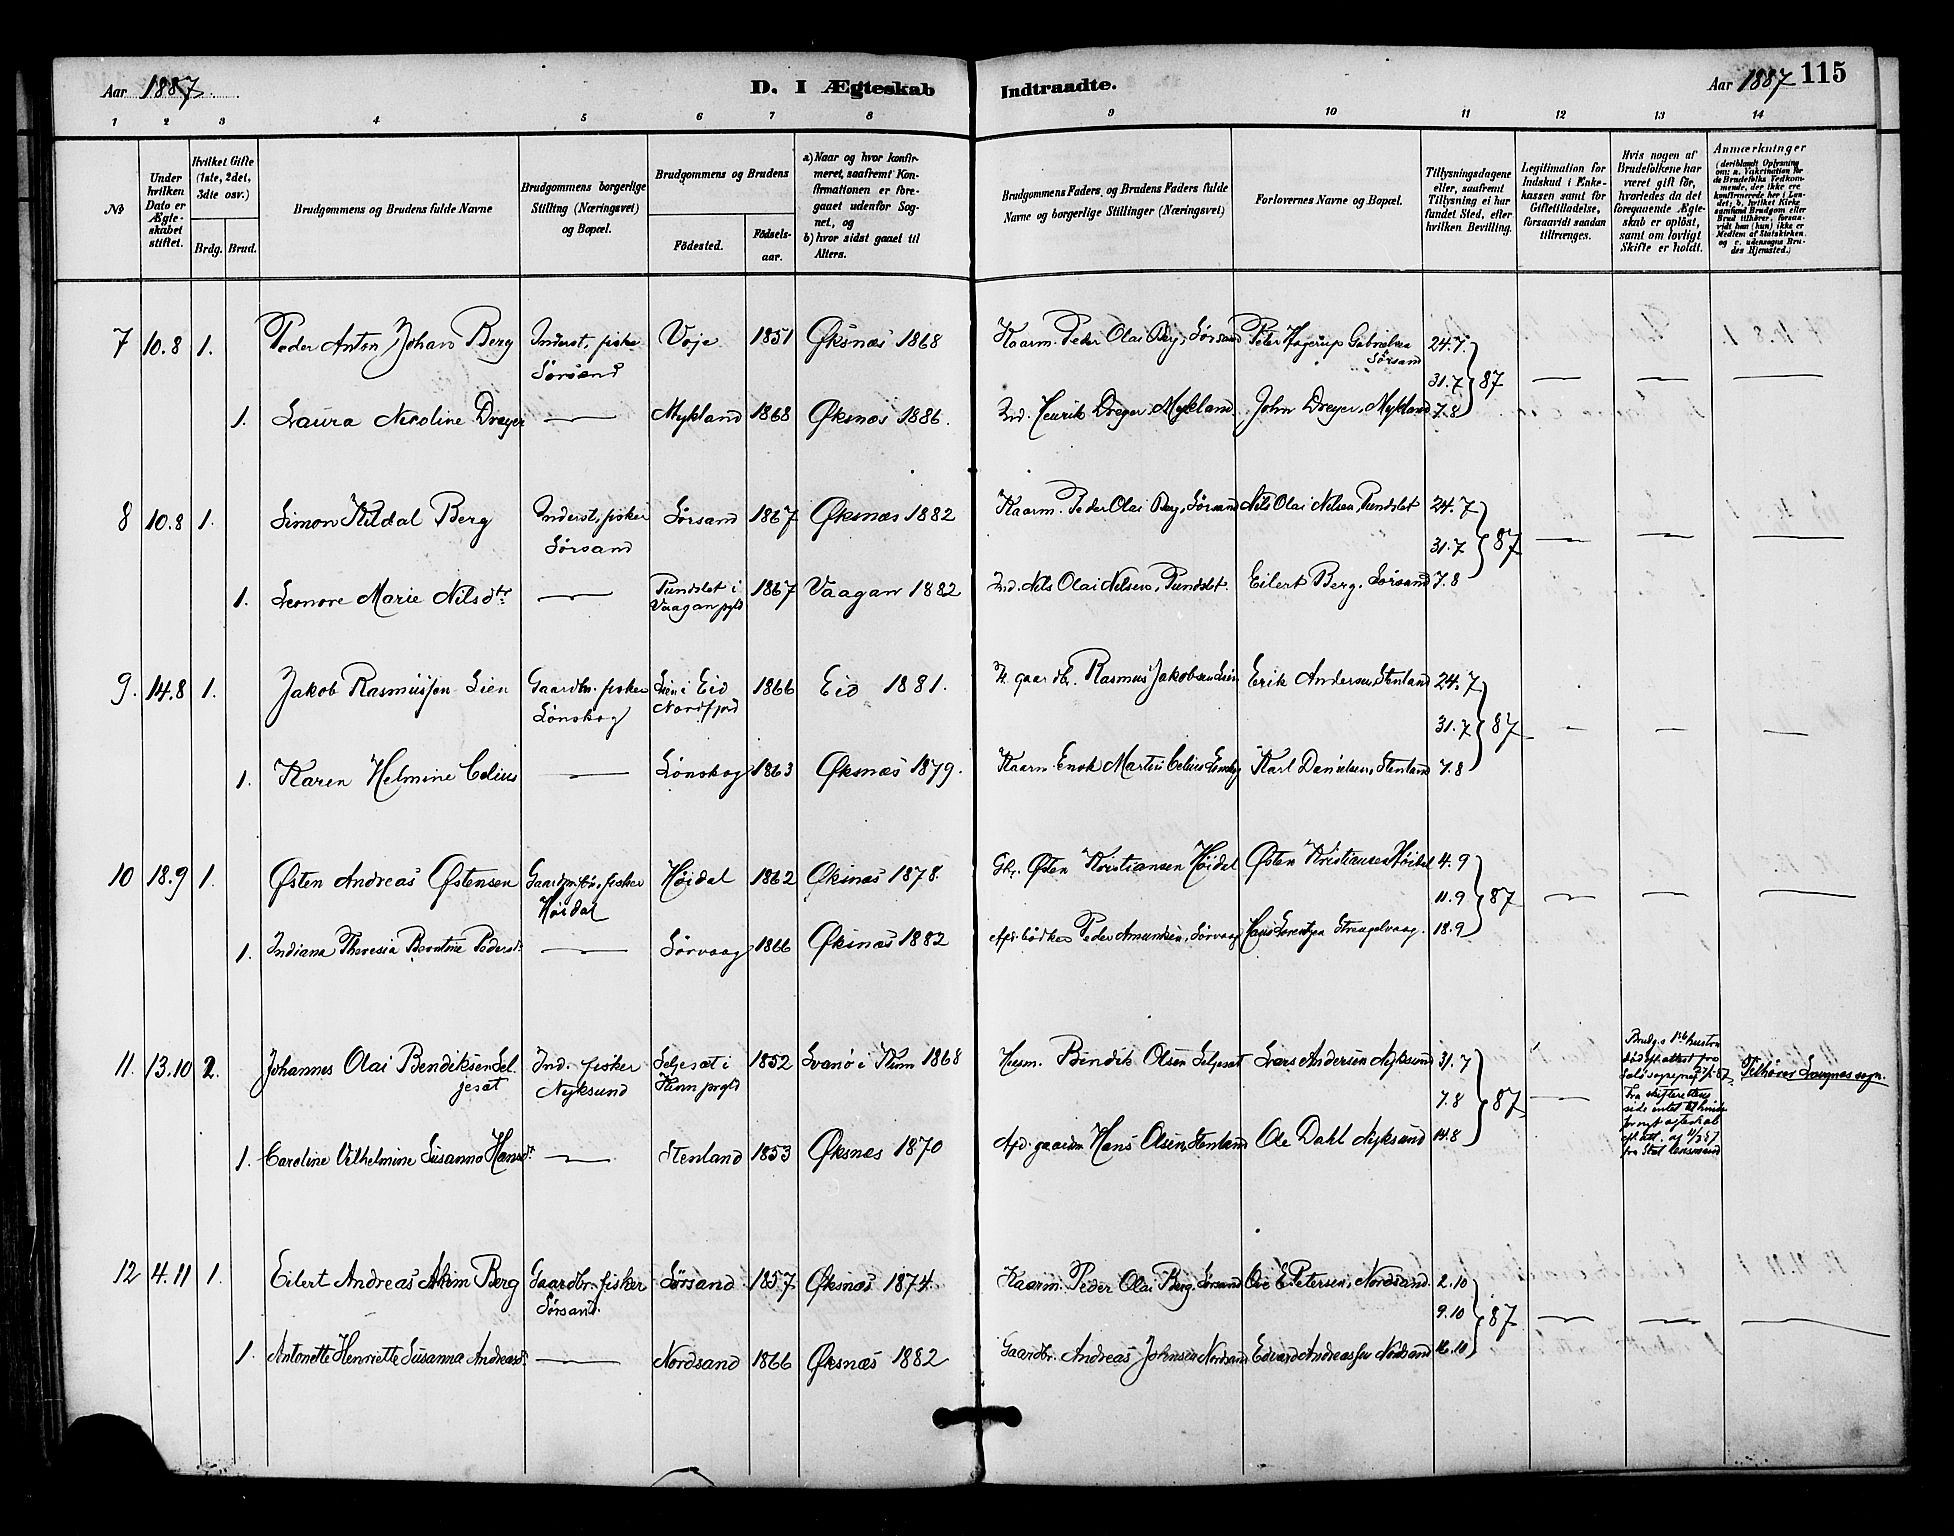 Aar 1887. D. I Ægteskab Indtraadte. Aar 1887 115
1 2 3 4 5 6 7 8 9 10 11 12 13 14
№
Under hvilken Dato er Ægteskabet stiftet.
Hvilket Gifte (1ste, 2det, 3die osv.)
Brdg. Brud.
Brudgommens og Brudens fulde Navne
Brudgommens borgerlige Stilling (Næringsvei) og Bopæl.
Brudgommens og Brudens
Födested. Födselsaar.
a) Naar og hvor konfirmeret, saafremt Konfirmationen er foregaaet udenfor Sognet, og
b) hvor sidst gaaet til Alters.
Brudgommens Faders og Brudens Faders fulde Navne og borgerlige Stillinger (Næringsvei)
Forlovernes Navne og Bopæl.
Tillysningsdagene eller, saafremt Tillysning ei har fundet Sted, efter hvilken Bevilling.
Legitimation for Indskud i Enkekassen samt for Giftetilladelse, forsaavidt saadan tiltrænges.
Hvis nogen af Brudefolkene har været gift för, hvorledes da det foregaaende Ægteskab er oplöst, samt om lovligt Skifte er holdt.
Anmærkninger
(deriblandt Oplysning om: a. Vakcination for de Brudefolks Vedkommende, der ikke ere konfirmerede her i Landet, b. hvilket Kirkesamfund Brudgom eller Brud tilhörer, forsaavidt han (hun) ikke er Medlem af Statskirken. og c. udensogns Brudes Hjemsted.)
7 10.8 1. Peder Anton Johan Berg Inderst, fisker Voje 1851 Øksnæs 1868 Kaarm. Peder Olai Berg, Sørsand Peter Hagerup Gabrielsen 24.7.
Sørsand Sørsand
31.7 } 87 — — —
1. Laura Nicoline Dreyer — Mykland 1868 Øksnæs 1886. Ind. Henrik Dreyer, Mykland. John Dreyer, Mykland 7.8
8 10.8 1. Simon Kildal Berg Inderst, fisker Sørsand 1867 Øksnæs 1882 Kaarm. Peder Olai Berg, Sørsand Nils Olai Nilsen, Pundslet 24.7
Sørsand
31.7 } 87 — — —
1. Leonore Marie Nilsdtr — Pundslet i 1867 Vaagan 1882 Ind. Nils Olai Nilsen, Pundslet. Eilert Berg, Sørsand 7.8
Vaagan pgld
9. 14.8 1. Jakob Rasmussen Lien Gaardbr. fisker Lien i Eid 1866 Eid 1881. gaardbr. Rasmus Jakobsen Lien Erik Andersen, Stenland 24.7
Lønskog Nordfjord
31.7 } 87 — — —
1. Karen Helmine Celius — Lønskog 1863 Øksnæs 1879. Kaarm. Enok Martin Celius Lønskog Karl Danielsen, Stenland 7.8
10 18.9 1. Østen Andreas Østensen fisker Høidal 1862 Øksnæs 1878. Gbr. Østen Kristiansen Høidal Østen Kristiansen Høidal 4.9
Høidal
11.9 } 87 — — —
1. Indiana Theresia Berntine Pedersdt. — Sørvaag 1866 Øksnæs 1882 Afd. bødker Peder Amundsen, Sørvaag Hans Lorentzen Strengelvaag. 18.9
11. 13.10 2. Johannes Olai Bendiksen Sel- Ind. fisker Seljesæt i 1852 Svanø i Kinn 1868 Husm. Bendik Olsen Seljesæt Lars Andersen Nyksund 31.7
jesæt Nyksund Kinn prgld
7.8 } 87 — Tilhører Langnæs sogn.
Brudg.s 1ste hustru
død eft. attest fra
1. Caroline Vilhelmine Susanna Hansdt — Stenland 1853 Øksnæs 1870 Afd. gaardm. Hans Olsen, Stenland Ole Dahl Nyksund 14.8
12 4.11 1. Eilert Andreas Akim Berg Gaardbr. fisker Sørsand 1857. Øksnæs 1874. Kaarm. Peder Olai Berg, Sørsand Ove E. Petersen, Nordsand. 2.10
Sørsand.
9.10 } 87 — — —
1. Antonette Henriette Susanna Andreasdt. — Nordsand 1866 Øksnæs 1882 Gaardbr. Andreas Johnsen Nordsand Edvard Andreassen Nordsand 16.10